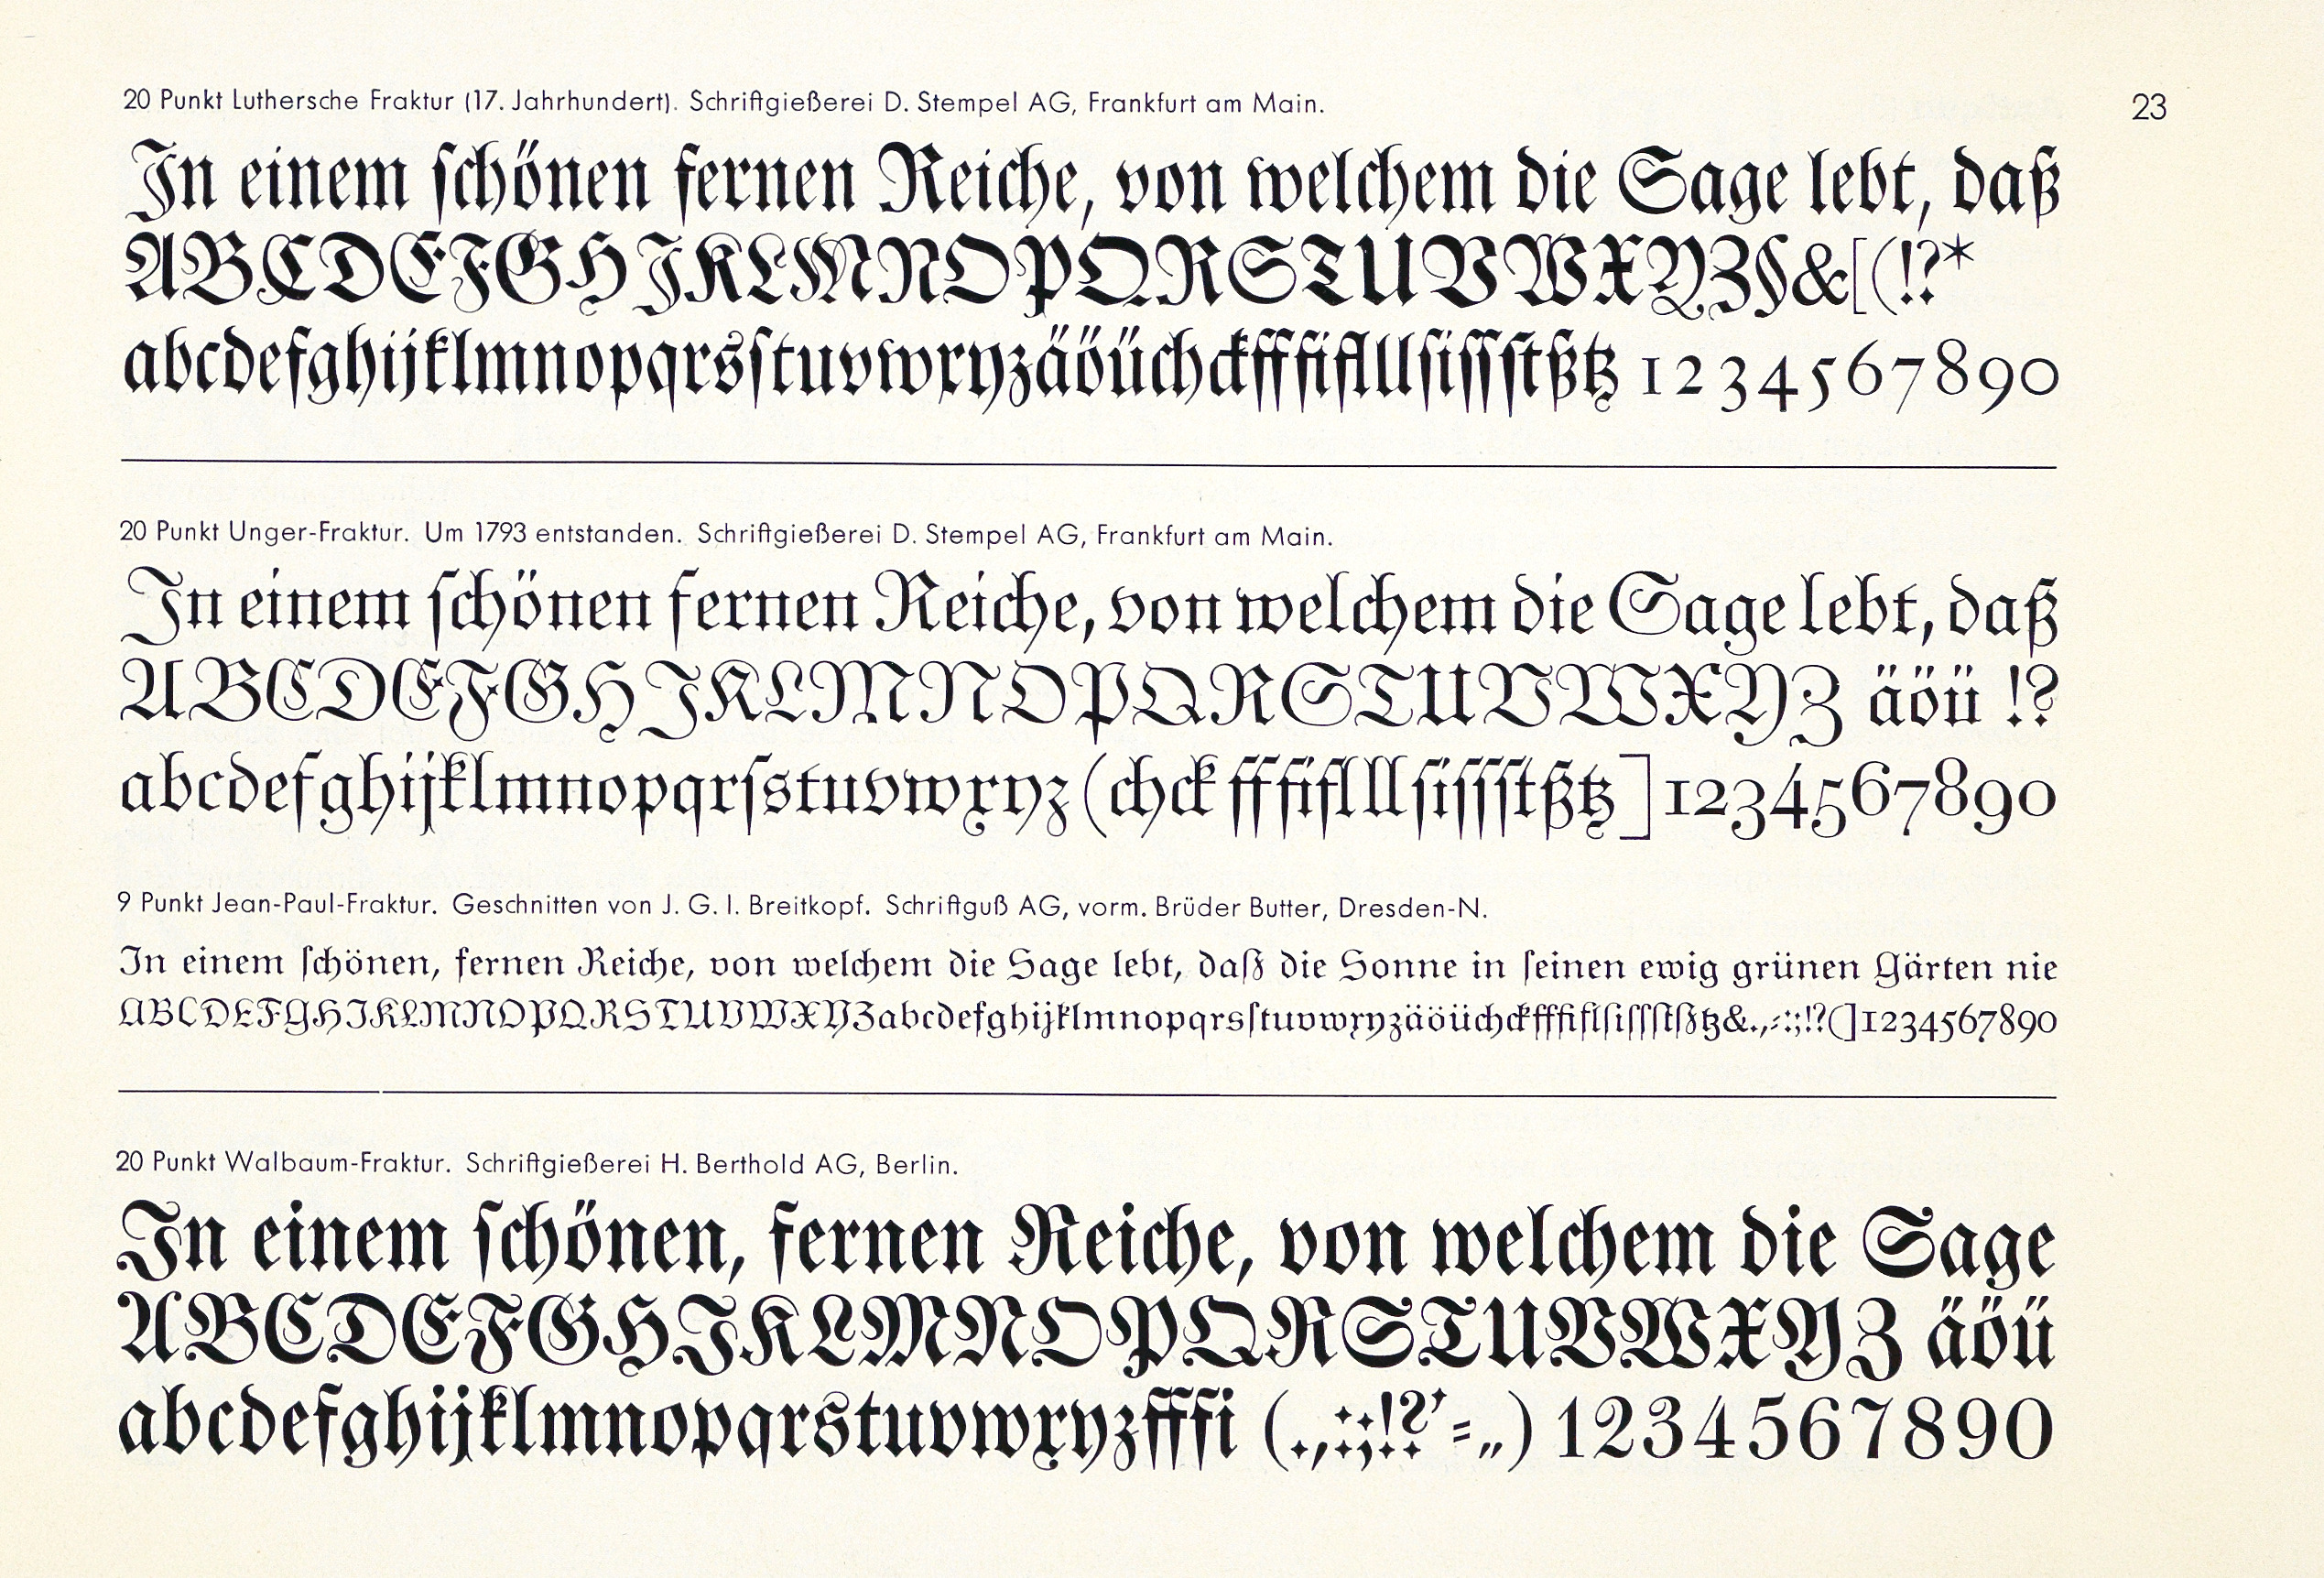 20 Punkt Luthersche Fraktur (17. Jahrhundert). Schriftgießerei D. Stempel AG, Frankfurt am Main.
23
In einem ſchönen fernen Reiche, von welchem die Sage lebt, daß
ABCDEFGHJKLMNOPQRSTUVWXYZ§&[(!?*
abcdefghijklmnopqrsſtuvwxyzäöüchckfffiflllſiſſſtßtz 1234567890
20 Punkt Unger-Fraktur. Um 1793 entstanden. Schriftgießerei D. Stempel AG, Frankfurt am Main.
In einem ſchönen fernen Reiche, von welchem die Sage lebt, daß
ABCDEFGHJKLMNOPQRSTUVWXYZ äöü !?
abcdefghijklmnopqrſstuvwxyz (chck fffiflllſiſſſtßtz] 1234567890
9 Punkt Jean-Paul-Fraktur. Geschnitten von J. G. I. Breitkopf. Schriftguß AG, vorm. Brüder Butter, Dresden-N.
In einem ſchönen, fernen Reiche, von welchem die Sage lebt, daß die Sonne in ſeinen ewig grünen Gärten nie
ABCDEFGHJKLMNOPQRSTUVWXYZabcdefghijklmnopqrsſtuvwxyzäöüchckfffiflſiſſſtßtz&.,⸗:;!?(]1234567890
20 Punkt Walbaum-Fraktur. Schriftgießerei H. Berthold AG, Berlin.
In einem ſchönen, fernen Reiche, von welchem die Sage
ABCDEFGHJKLMNOPQRSTUVWXYZ äöü
abcdefghijklmnopqrstuvwxyzfffi (.,:;!?’⸗„) 1234567890